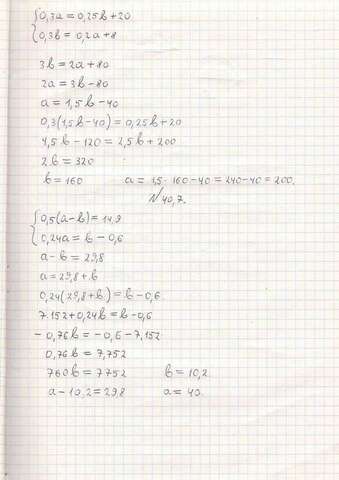 {0,3a = 0,25b + 20
{0,3b = 0,2a + 8
3b = 2a + 80
2a = 3b - 80
a = 1,5b - 40
0,3(1,5b - 40) = 0,25b + 20
4,5b - 120 = 2,5b + 200
2b = 320
b = 160 a = 1,5 · 160 - 40 = 240 - 40 = 200.
N 40,7.
{0,5(a - b) = 14,9
{0,24a = b - 0,6
a - b = 29,8
a = 29,8 + b
0,24(29,8 + b) = b - 0,6.
7.152 + 0,24b = b - 0,6
- 0,76b = - 0,6 - 7,152
0,76b = 7,752
760b = 7752 b = 10,2.
a - 10,2 = 29,8 a = 40.